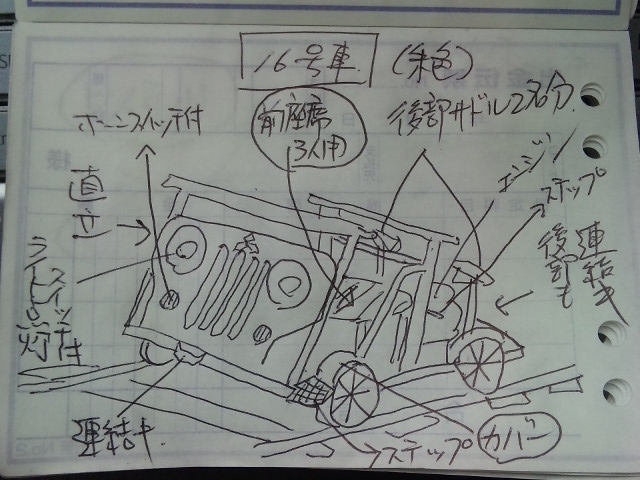 16号車
(朱色)
ホーンスイッチ付
前座席
3人用
後部サドル2名分
エンジン
ステップ
直立
ライトスイッチ付
点灯
連結キ
後部も
連結キ
ステップ
カバー